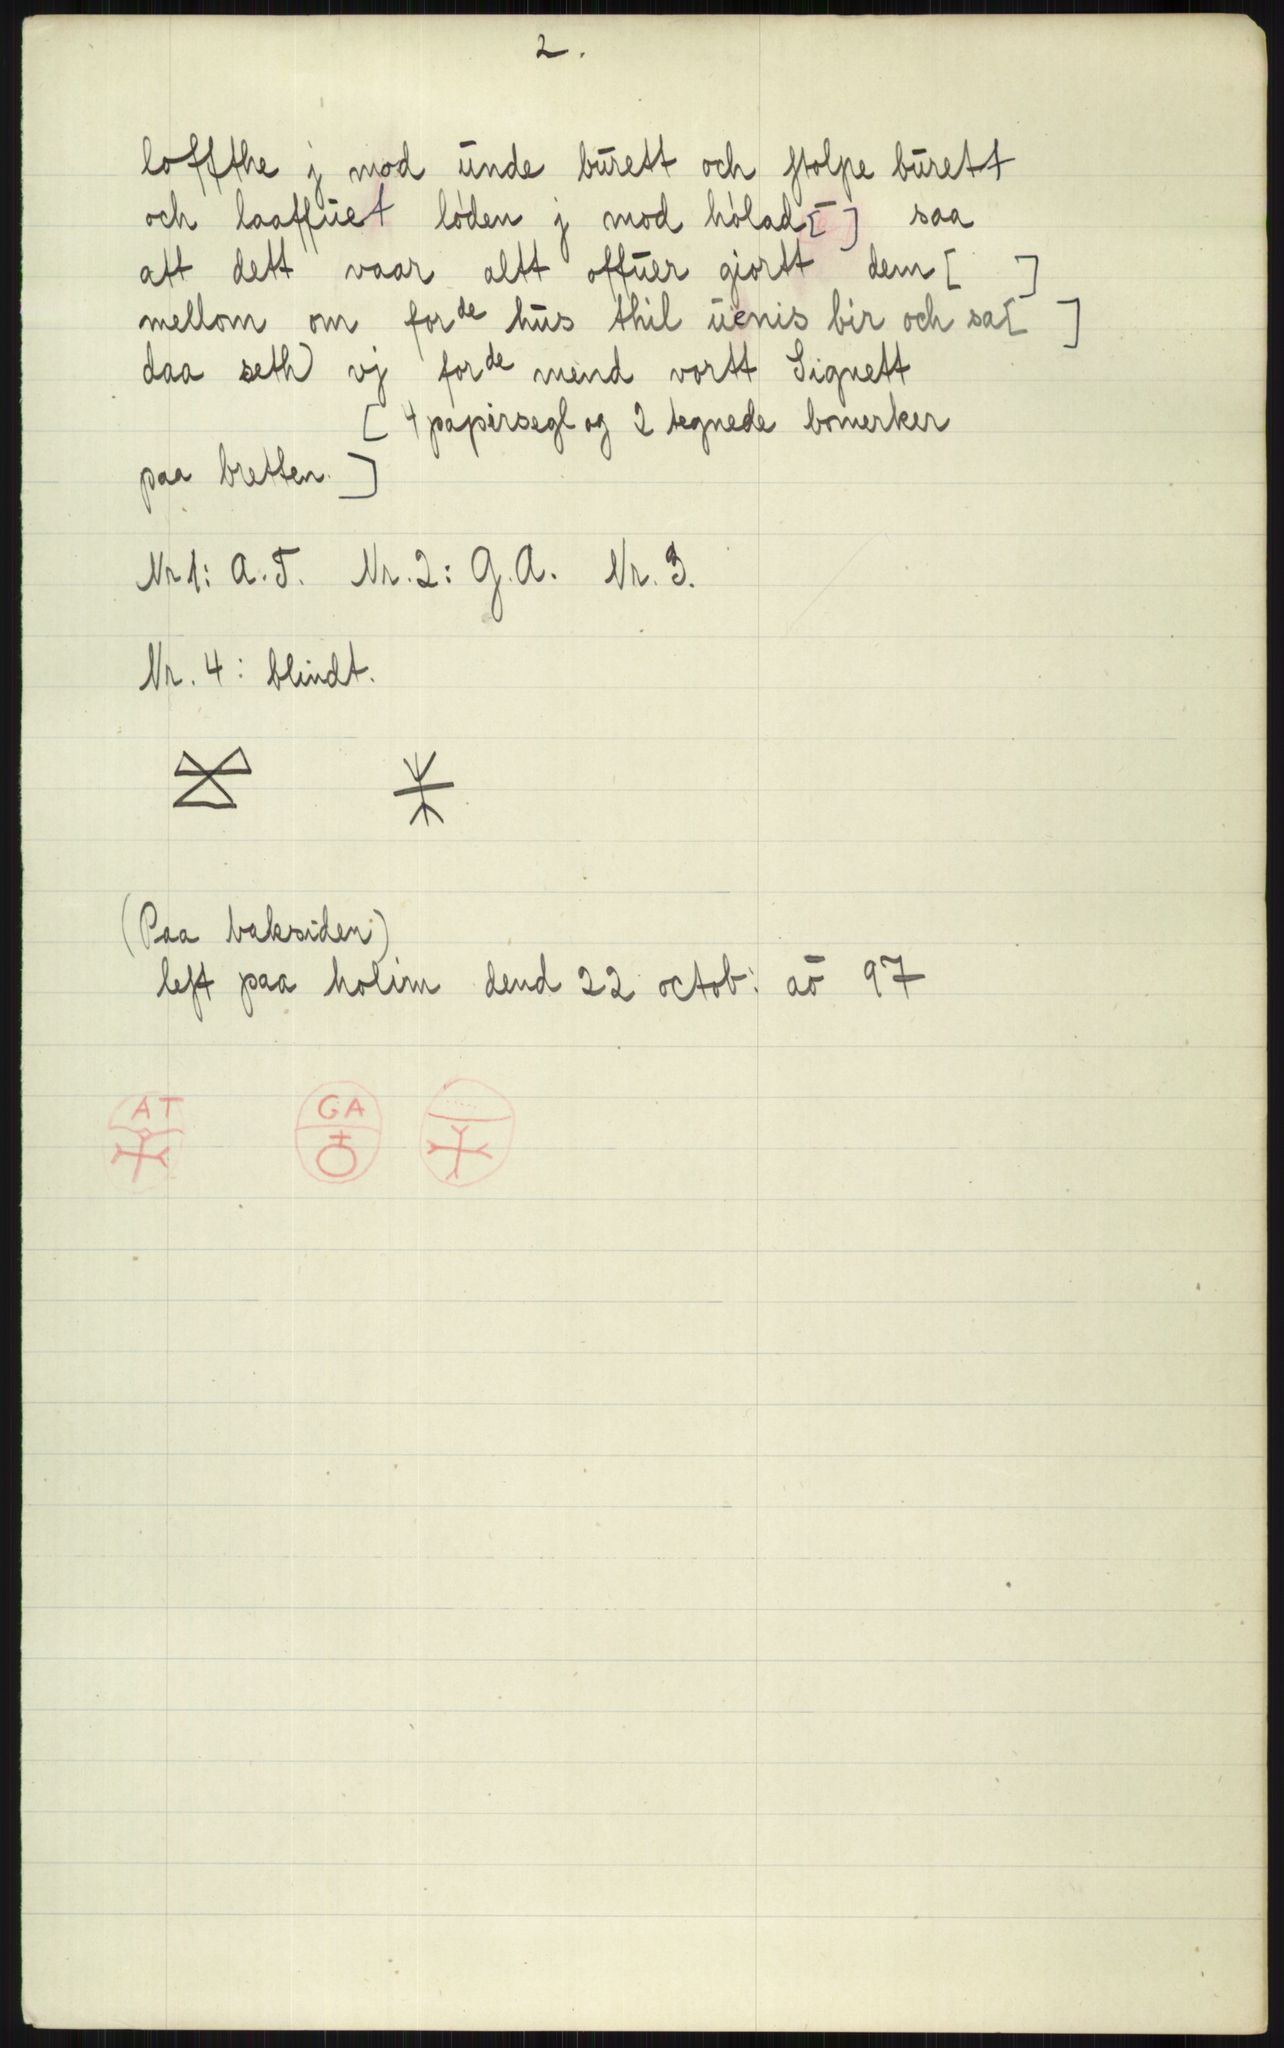 2.
loffthe j mod ünde bürett och stolpe bürett
och laaffüet løden j mod hølad[ ] saa
att dett vaar altt offüer giortt dem[ ]
mellom om forde hüs thil üenis bir och sa[ ]
daa seth vj forde mend vortt Signett
[4 papirsegl og 2 tegnede bomerker
paa bretten.]
Nr 1: A.T. Nr. 2: G.A. Nr. 3.
Nr. 4: blindt.
(Paa baksiden)
lest paa holim dend 22 octob: aō 97
AT GA